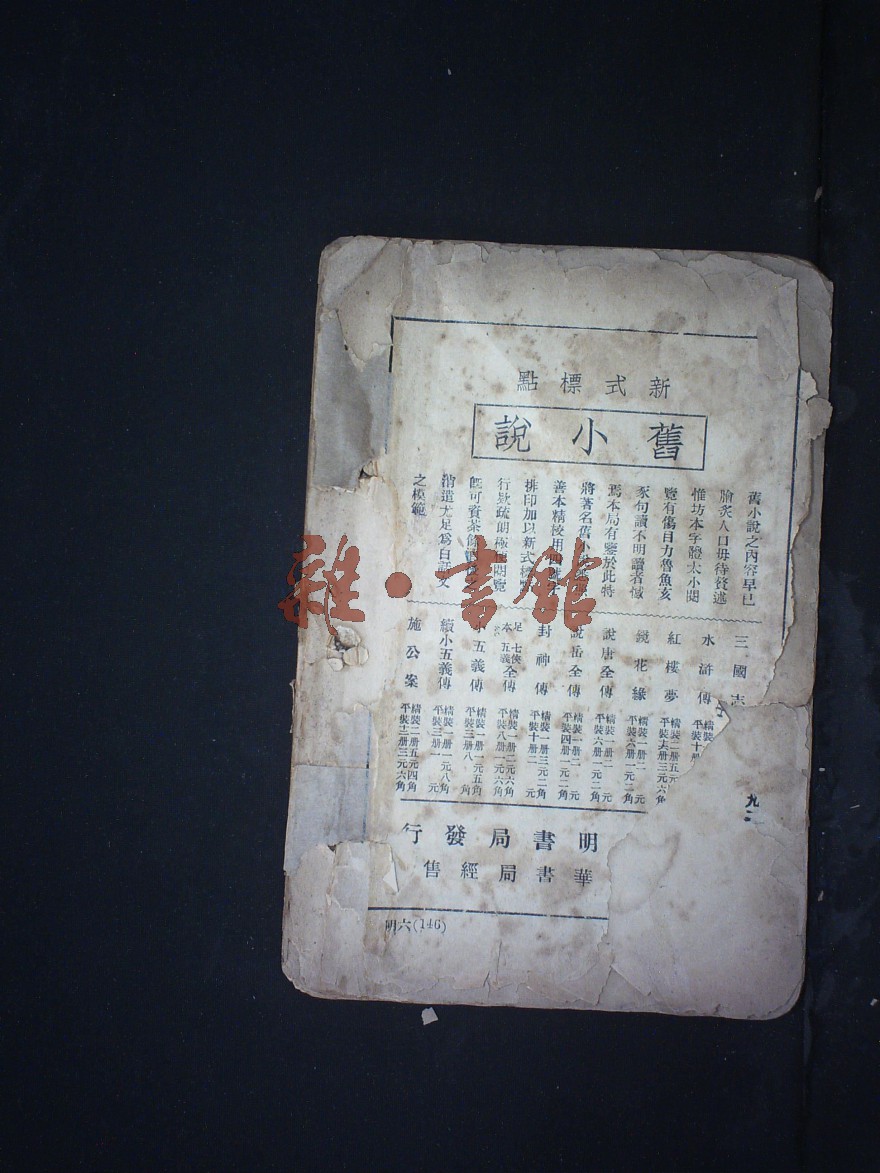 新式標點
舊小說
舊小說之內容早已
膾炙人口毋待贅述
惟坊本字體太小閱
覽有傷目力魯魚亥
豕句讀不明讀者憾
焉本局有鑒於此特
將著名舊小說
善本精校用
排印加以新式標點
行欵疏朗極便閱覽
旣可資茶餘
消遣尤足爲白話文
之模範
三國志
水滸傳 精裝 平裝十册
紅樓夢 精裝二册五元 平裝六册三元六角
鏡花緣 精裝一册二元 平裝六册一元二角
說唐全傳 精裝一册二元 平裝六册一元二角
說岳全傳 精裝一册二元 平裝四册一元二角
封神傳 精裝一册三元二角 平裝十册二元
足本 七俠五義全傳 精裝一册二元六角 平裝八册一元六角
小五義傳 精裝一册一元五角 平裝三册八角
續小五義傳 精裝一册一元八角 平裝三册一元
施公案 精裝二册五元四角 平裝十二册三元六角
九
明書局發行
華書局經售
明六(146)
雜·書館